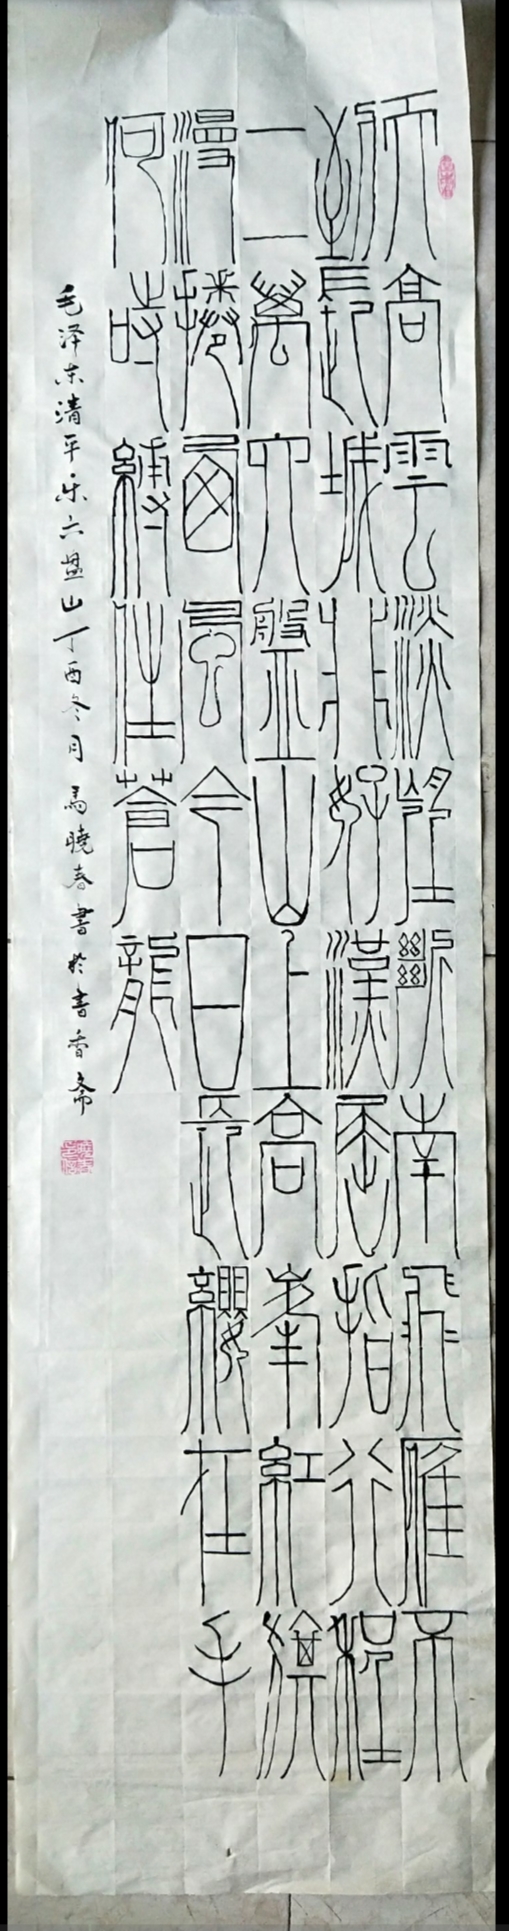 天高雲淡望斷南飛雁不
到長城非好漢屈指行程
二萬六盤山上高峰紅旗
漫捲西風今日長纓在手
何時縛住蒼龍
毛泽东清平乐六盘山丁酉冬月 馬曉春書於書香斋